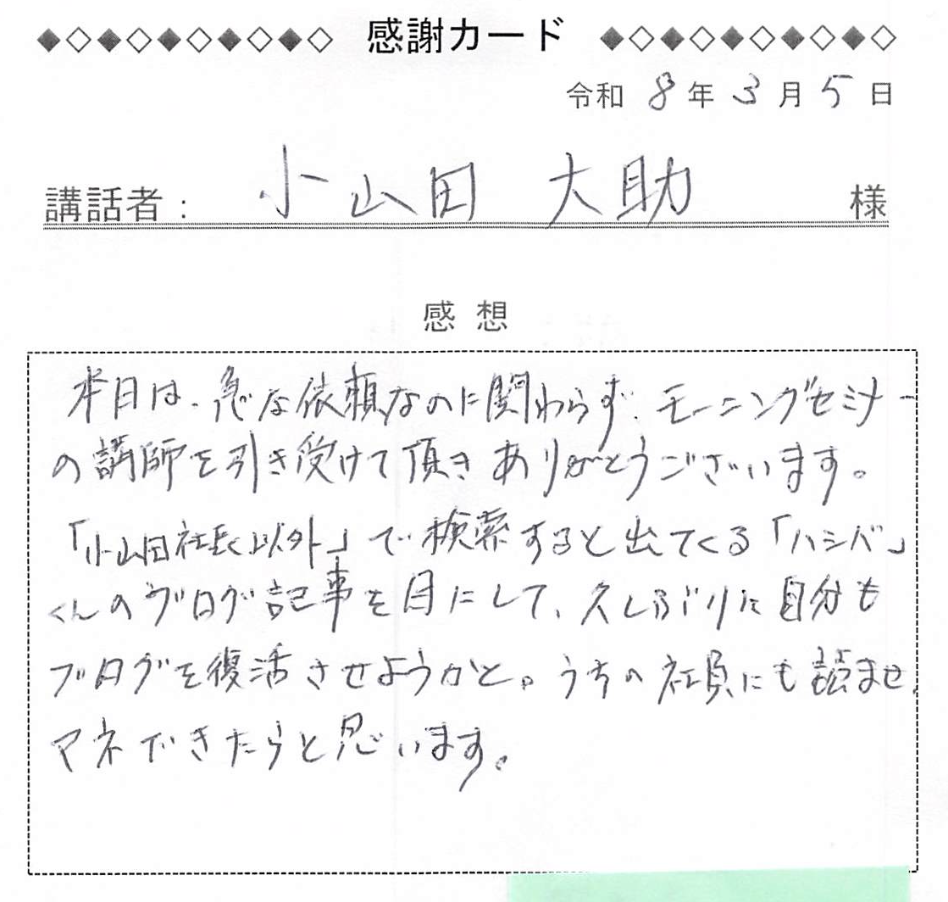 ◆◇◆◇◆◇◆◇◆◇ 感謝カード ◆◇◆◇◆◇◆◇◆◇
令和 8 年 3 月 5 日
講話者： 小山田 大助 様
感 想
本日は、急な依頼なのに関わらず、モーニングセミナー
の講師を引き受けて頂きありがとうございます。
「小山田社長以外」で検索すると出てくる「ハシバ」
くんのブログ記事を目にして、久しぶりに自分も
ブログを復活させようかと。うちの社員にも読ませ、
マネできたらと思います。